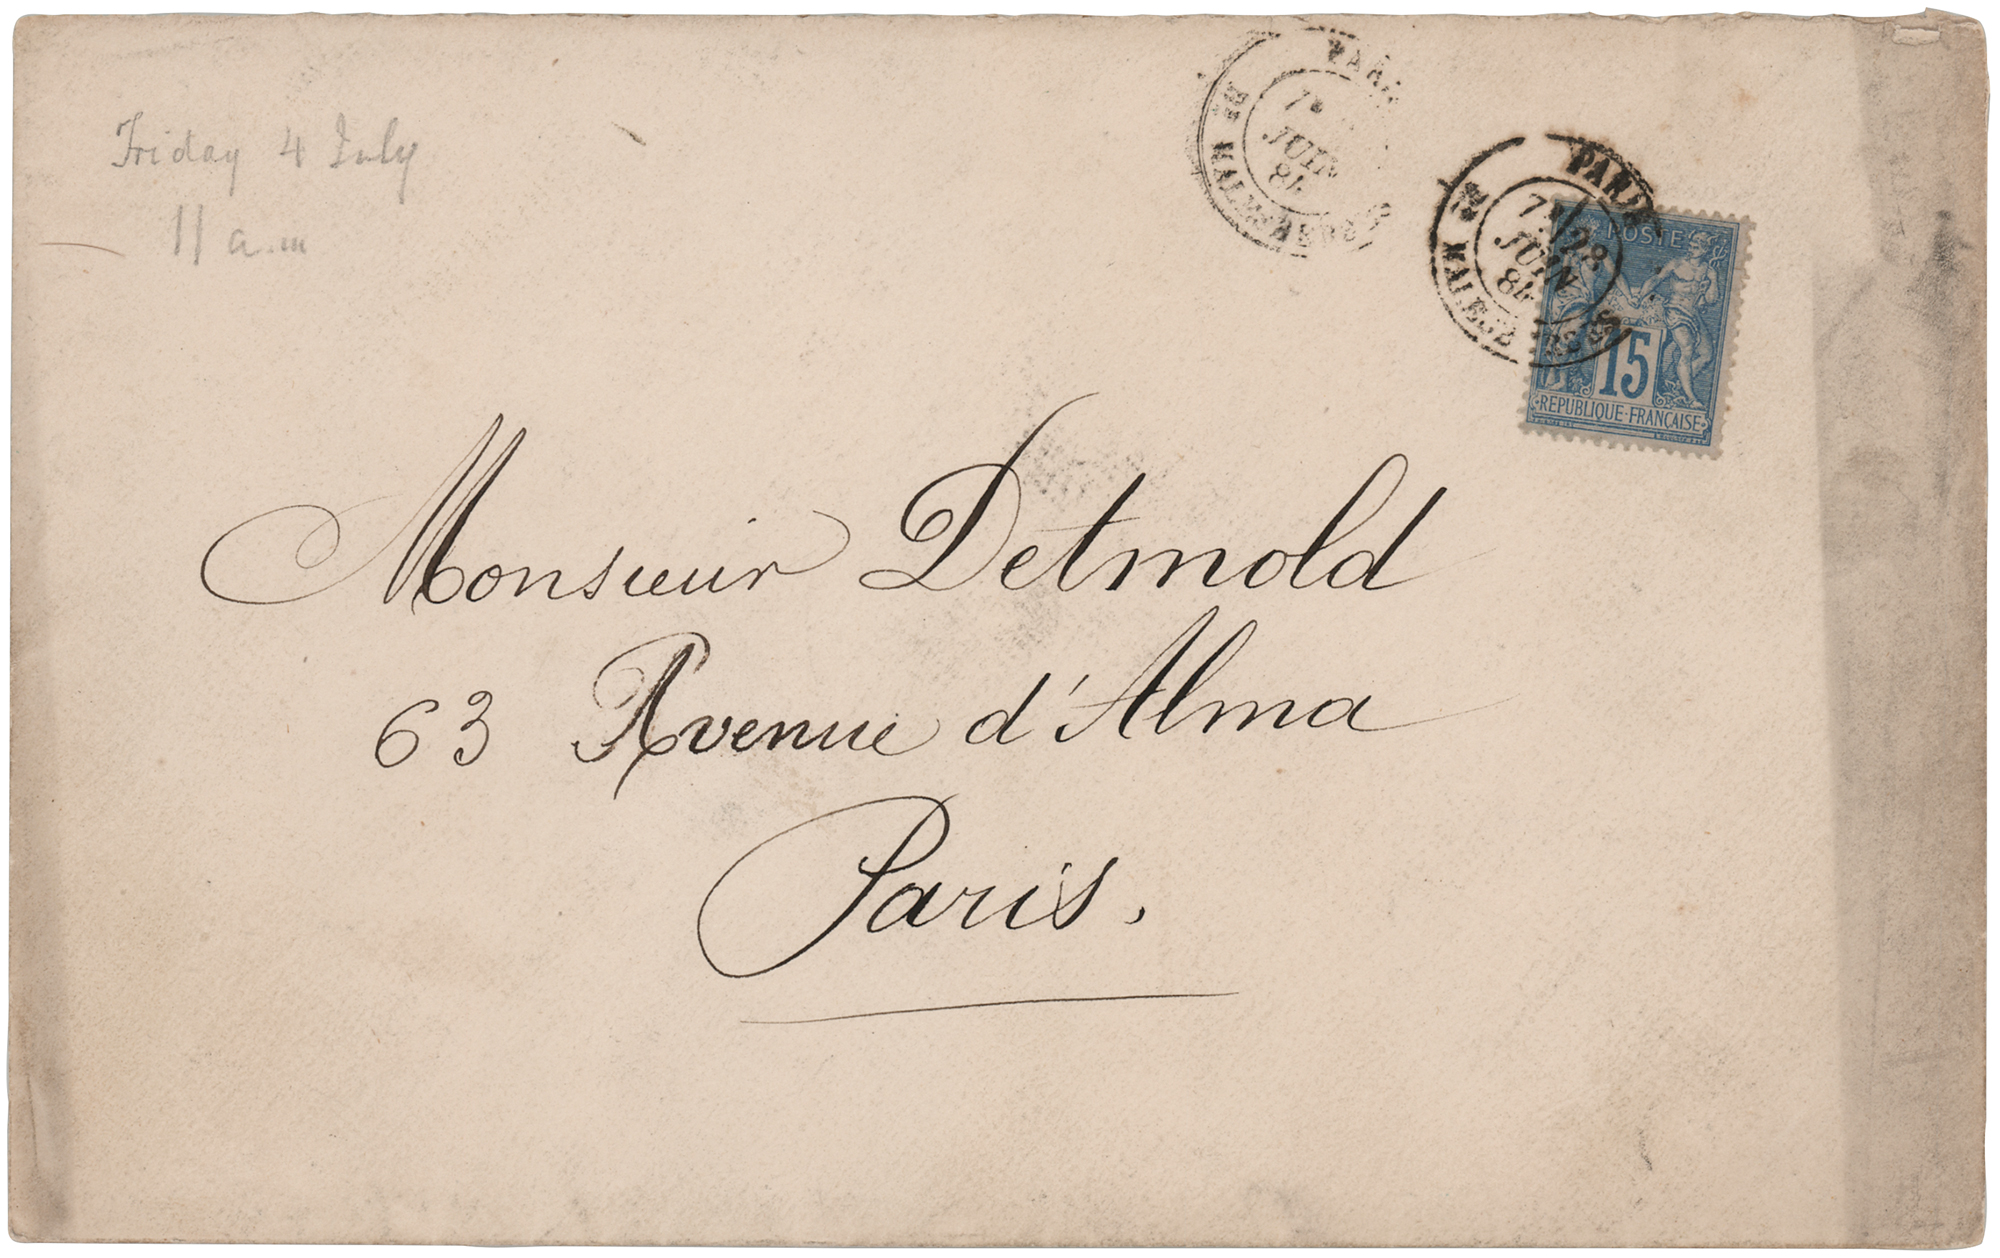 Friday 4 July
11 a.m
PARIS
7E
JUIN
84
PARIS
7E 28
JUIN
84
POSTE
15
REPUBLIQUE FRANÇAISE
Monsieur Detmold
63 Avenue d'Alma
Paris.